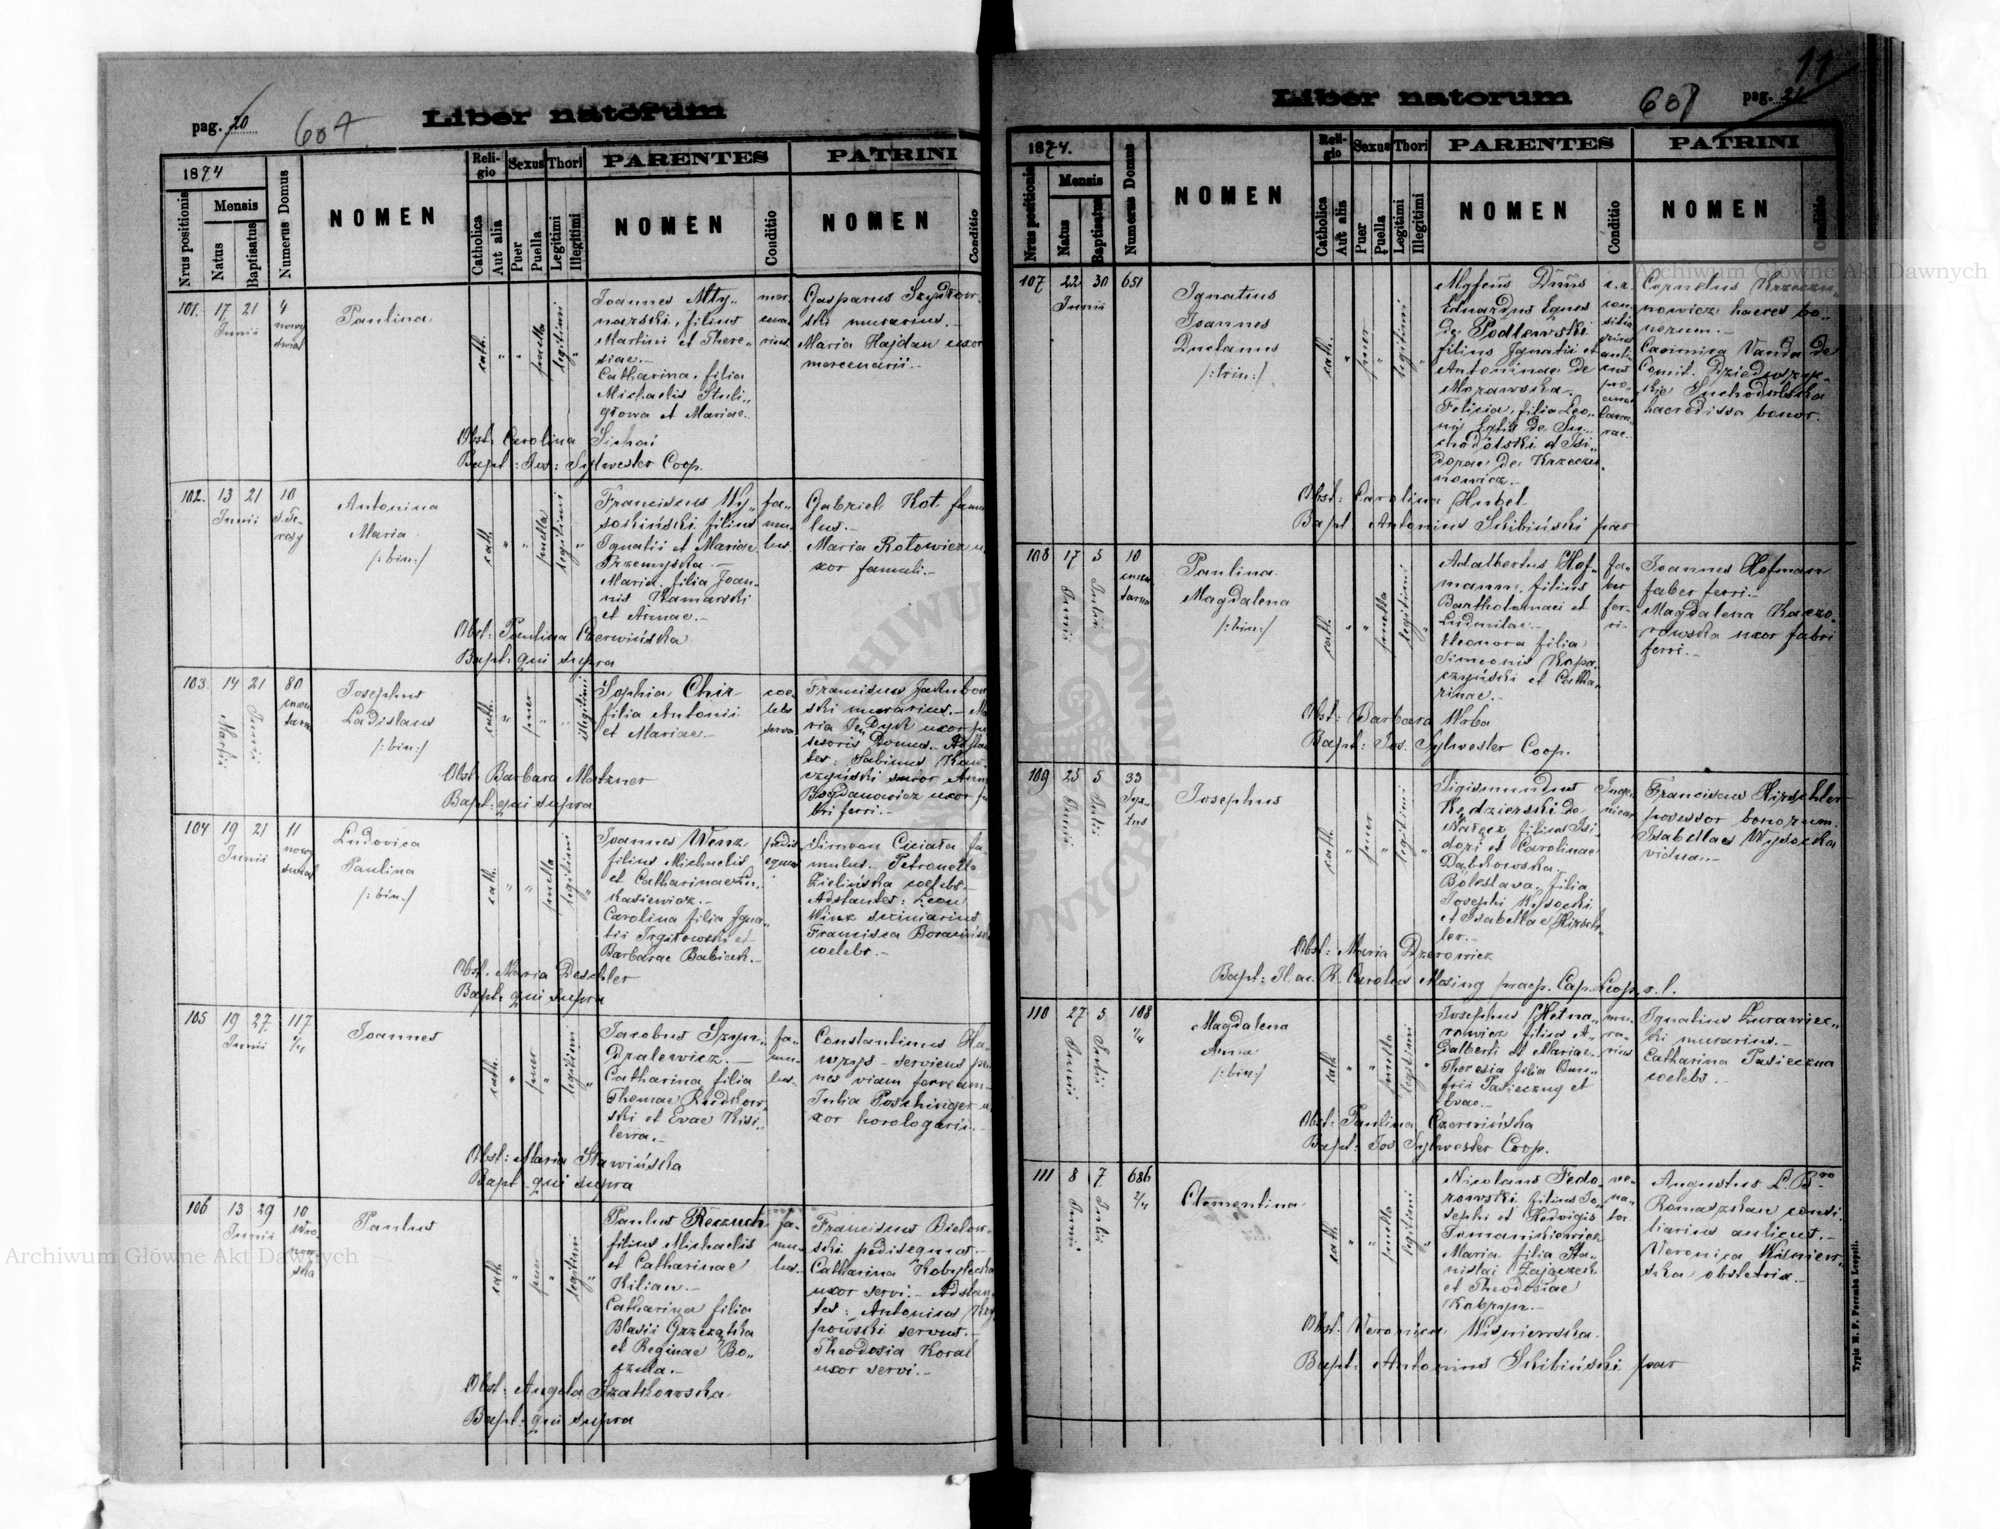 pag. 20
607
Liber natorum
1874
Nrus positionis
Mensis
Natus
Baptisatus
Numerus Domus
NOMEN
Religio
Catholica
Aut alia
Sexus
Puer
Puella
Thori
Legitimi
Illegitimi
PARENTES
NOMEN
Conditio
PATRINI
NOMEN
Conditio
101. 17 21 Junii 4 nowy świat
Paulina
cath. " " puella legitimi "
Joannes Mły-
narski, filius
Martini et There-
siae.-
Catharina, filia
Michaelis Stuli-
głowa et Mariae.
mer-
cena-
rius
Gasparus Szydłow-
ski murarius.-
Maria Hajdan uxor
mercenarii.-
Obst: Carolina Sichoń
Bapt: Jos: Sylwester Coop.
102. 13 21 Junii 10
Antonina
Maria
/:bin:/
cath. " " puella legitimi "
Franciscus Wy-
sockiński filius
Ignatii et Mariae
Przemyska.-
Maria, filia Joan-
nis Kamarski
et Annae.-
fa-
mu-
lus.
Gabriel Kot famu
lus.-
Maria Rotowicz u-
xor famuli.-
Obst: Paulina Czerwińska
Bapt: qui supra
103. 14 Martii 21 Junii 80
Josephus
Ladislaus
/:bin:/
cath. " puer " " illegitimi
Sophia Chir
filia Antonii
et Mariae.-
coe-
lebs
serva
Franciscus Jakubow
ski murarius.-
uxor
Domus.- Adstan
tes: Sabinus
sutor
Bogdanowicz uxor fa
bri ferri.-
Obst: Barbara Matzner
Bapt: qui supra
104 19 21 Junii 11 nowy świat
Ludovica
Paulina
/:bin:/
cath. " " puella legitimi "
Joannes Wenz
filius Michaelis
et Catharinae Łu-
kasiewicz.-
Carolina filia Igna-
tii et
Barbarae Babiczk.-
pedis
equus
Simeon Ciciała fa-
mulus.- Petronella
Zielińska coelebs.-
Adstantes: Leon
Winz scriniarius
Francisca
coelebs.-
Obst. Maria Deschler
Bapt: qui supra
105 19 27 Junii 117 2/4
Joannes
cath. " puer " legitimi "
Jacobus Szyn-
dralewicz.-
Catharina filia
Thomae Rudkow-
ski et Evae Kisi-
lewa.-
fa-
mu-
lus.
Constantinus Ha-
wrys - serviens pe
nes viam ferream.-
Julia Poschinger u-
xor horologarii.-
Obst: Maria Stawińska
Bapt. qui supra
106 13 29 Junii 10
Paulus
cath. " puer " legitimi "
Paulus Reczuch
filius Michaelis
et Catharinae
Kilian.-
Catharina filia
Blasii Grzegżółka
et Reginae Bo-
czula.-
fa-
mu-
lus.-
Franciscus Bielow-
ski pedisequus.-
Catharina Kobylecka
uxor servi.- Adstan-
tes: Antonius
servus.-
Theodosia Koral
uxor servi.-
Obst: Angela Szatkowska
Bapt: qui supra
11
Liber natorum
608
pag. 21
1874.
Nrus positionis
Mensis
Natus
Baptisatus
Numerus Domus
NOMEN
Religio
Catholica
Aut alia
Sexus
Puer
Puella
Thori
Legitimi
Illegitimi
PARENTES
NOMEN
Conditio
PATRINI
NOMEN
Conditio
107 22 30 Junii 651
Ignatius
Joannes
Duclanus
/:trin:/
cath. " puer " legitimi "
Mgfcus Dnus
Eduardus Eques
de Podlewski
filius Ignatii et
Antoninae de
Morawska.-
Felicia, filia Leo-
nis Equ: de Su-
chodolski et Isi-
dorae de Krzeczu-
nowicz.-
Cornelius Krzeczu-
nowicz haeres bo-
norum.-
Casimira Vanda de
Comit. Dzieduszyc-
ki Suchodolska
haeredissa bonor.
Obst: Carolina Hubel
Bapt Antonius Skibiński par
108 17 Junii 5 Julii 10 cmen tarna
Paulina
Magdalena
/:bin:/
cath. " " puella legitimi "
Adalbertus Hof-
mann, filius
Bartholomaei et
Ludmilae.-
Eleonora filia
Simeonis Kopa-
czyński et Catha-
rinae.-
fa-
ber
fer-
ri.
Joannes Hofman
faber ferri.-
Magdalena Kaczo-
rowska uxor fabri
ferri.-
Obst: Barbara Wrba
Bapt: Jos. Sylwester Coop.
109 25 Junii 5 Julii 33
Josephus
cath. " puer " legitimi "
Sigismundus
Kędzierski de
Nałęcz filius Isi-
dori et Carolinae
Dąbkowska.
Bolesława, filia
Josephi Wysocki
et Isabellae Hirsch-
ler.-
Inge-
nieur
Franciscus Hirschler
possessor bonorum.
Isabellae Wysocka
vidua.-
Obst: Maria Dzerowicz
Bapt: Carolus Mosing praep. Cap. Leop. r. l.
110 27 Junii 5 Julii 108 1/4
Magdalena
Anna
/:bin:/
cath. " " puella legitimi "
Josephus Hetna-
rowicz filius A-
dalberti et Mariae.-
Theresia filia Onu-
frii Pasieczny et
Evae.-
mu-
ra-
rius
Ignatius Żurawiec-
ki murarius.-
Catharina Pasieczna
coelebs.-
Obst: Paulina Czerwińska
Bapt: Jos. Sylwester Coop.
111 8 Junii 7 Julii 686 2/4
Clementina
cath. " " puella legitimi "
Nicolaus Fedo-
rowski filius Jo-
sephi et Hedvigis
Tomankiewicz
Maria filia Sta-
nislai Zajączek
et Theodosiae
ve-
na-
tor.
Augustus L. Bro
Romaszkan consi-
liarius aulicus.-
Veronica Wiśniew-
ska obstetrix.-
Obst: Veronica Wiśniewska
Bapt: Antonius Skibiński par
Typis M. F. Poremba Leopoli.
Archiwum Główne Akt Dawnych
Archiwum Główne Akt Dawnych
ARCHIWUM GŁÓWNE AKT DAWNYCH